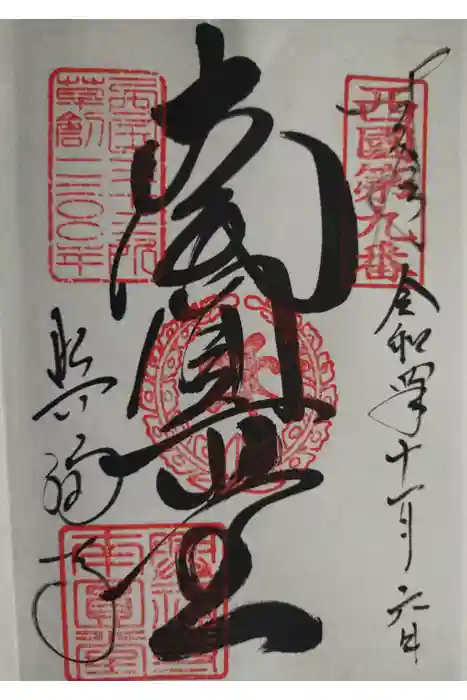 西國第九番
令和四年十一月六日
南圓堂
西国三十三所
草創一三〇〇年
興福寺
南圓堂